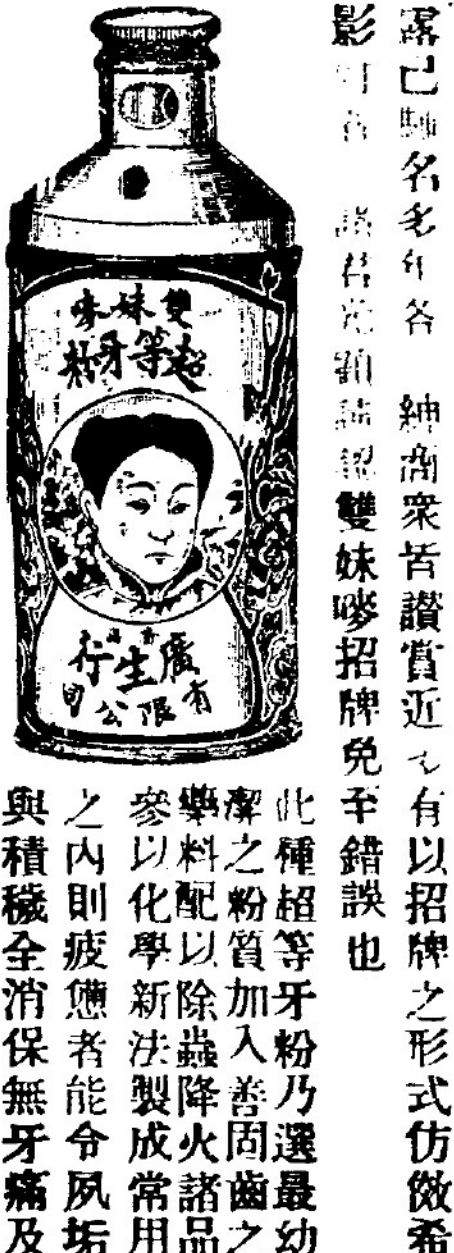 露已馳名多年各 紳商衆皆讚賞近有以招牌之形式仿傚希
影 諸君光顧請認雙妹嘜招牌免至錯誤也
雙妹嘜
超等牙粉
香港
廣生行
有限公司
此種超等牙粉乃選最幼
潔之粉質加入善固齒之
藥料配以除蟲降火諸品
參以化學新法製成常用
之內則疲憊者能令夙垢
與積穢全消保無牙痛及